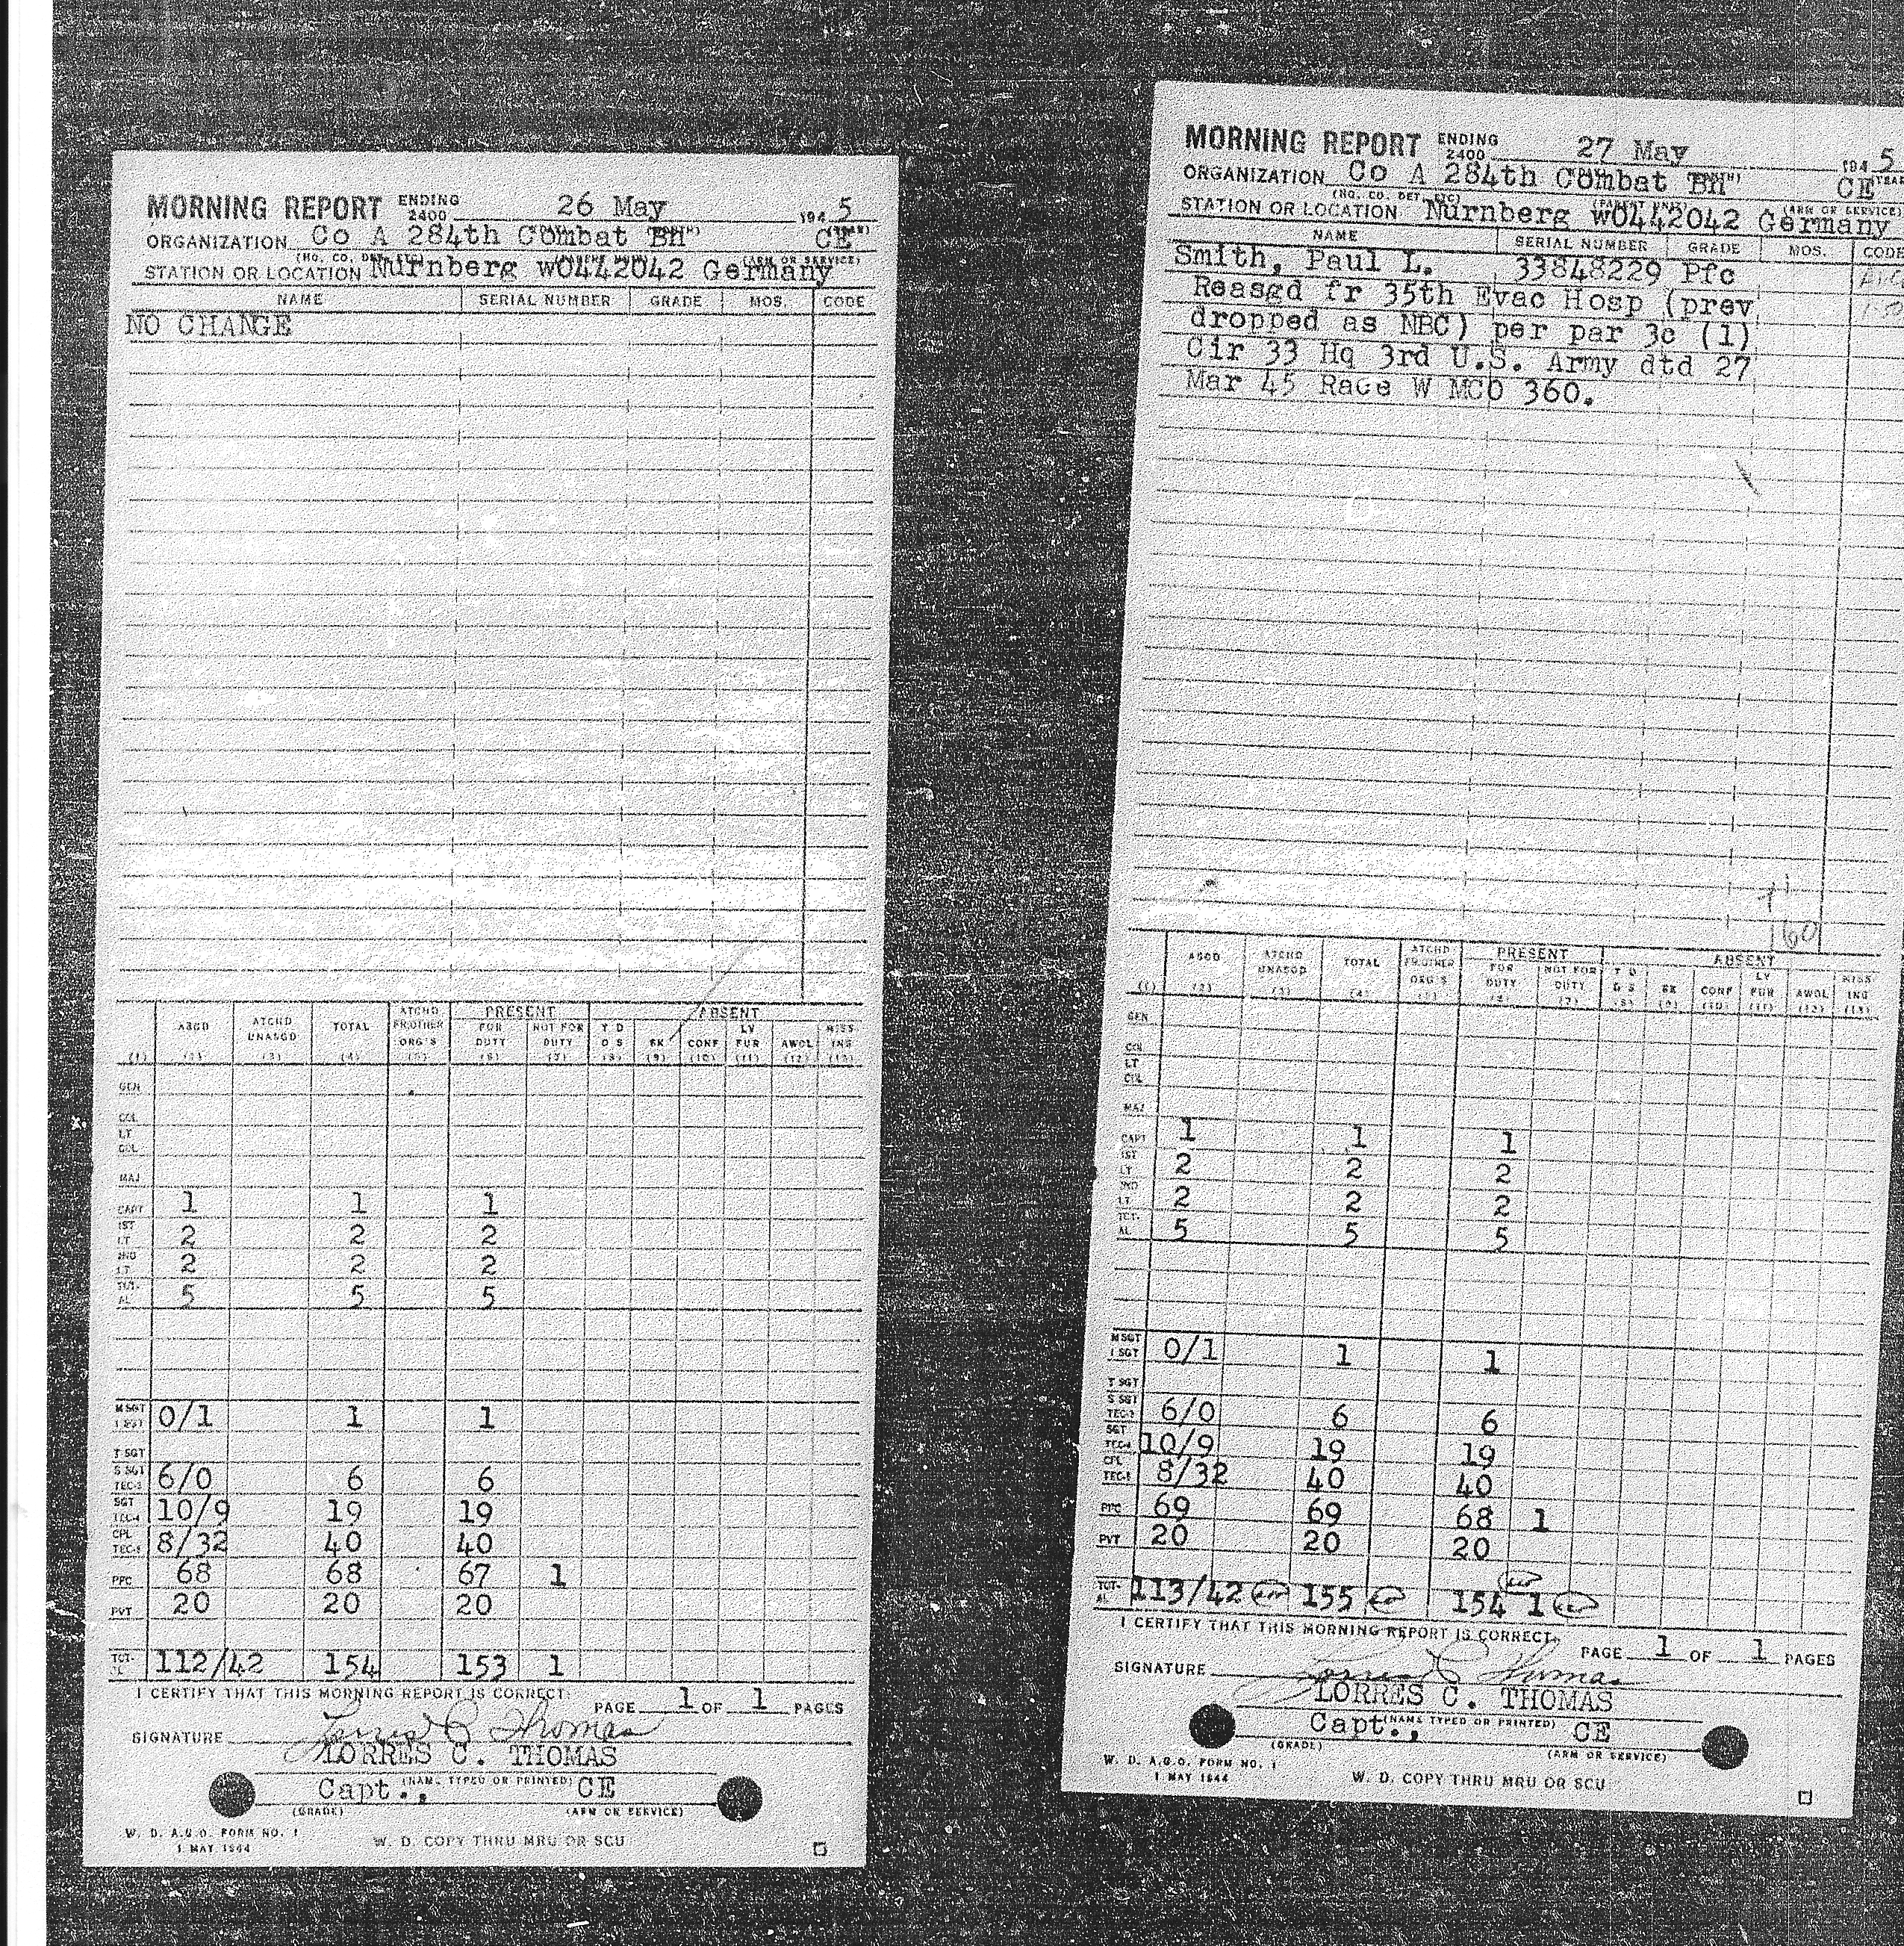 MORNING REPORT ENDING 2400 26 May 194 5
ORGANIZATION Co A 284th Combat Bn CE
(HQ. CO. DET. ETC) (ARM OR SERVICE)
STATION OR LOCATION Nurnberg wO442042 Germany
NAME SERIAL NUMBER GRADE MOS. CODE
NO CHANGE
PRESENT ABSENT
ASGD ATCHD UNASGD TOTAL ATCHD FR OTHER ORG'S FOR DUTY NOT FOR DUTY T D D S SK CONF LV FUR AWOL MISS ING
(1) (2) (3) (4) (5) (6) (7) (8) (9) (10) (11) (12) (13)
GEN
COL
LT COL
MAJ
CAPT 1 1 1
1ST LT 2 2 2
2ND LT 2 2 2
TOT-AL 5 5 5
M SGT 1 SGT 0/1 1 1
T SGT
S SGT TEC-3 6/0 6 6
SGT TEC-4 10/9 19 19
CPL TEC-5 8/32 40 40
PFC 68 68 67 1
PVT 20 20 20
TOT-AL 112/42 154 153 1
I CERTIFY THAT THIS MORNING REPORT IS CORRECT.
PAGE 1 OF 1 PAGES
SIGNATURE Lorres C Thomas
LORRES C. THOMAS
(NAME TYPED OR PRINTED)
Capt., CE
(GRADE) (ARM OR SERVICE)
W. D. A.G.O. FORM NO. 1
1 MAY 1944
W. D. COPY THRU MRU OR SCU
MORNING REPORT ENDING 2400 27 May 194 5
ORGANIZATION Co A 284th Combat Bn CE
(HQ. CO. DET. ETC) (PARENT UNIT) (ARM OR SERVICE)
STATION OR LOCATION Nurnberg wO442042 Germany
NAME SERIAL NUMBER GRADE MOS. CODE
Smith, Paul L. 33848229 Pfc
Reasgd fr 35th Evac Hosp (prev
dropped as NBC) per par 3c (1)
Cir 33 Hq 3rd U.S. Army dtd 27
Mar 45 Race W MCO 360.
60
PRESENT ABSENT
ASGD ATCHD UNASGD TOTAL ATCHD FR OTHER ORG'S FOR DUTY NOT FOR DUTY T D D S SK CONF LV FUR AWOL MISS ING
(1) (2) (3) (4) (5) (6) (7) (8) (9) (10) (11) (12) (13)
GEN
COL
LT COL
MAJ
CAPT 1 1 1
1ST LT 2 2 2
2ND LT 2 2 2
TOT-AL 5 5 5
M SGT 1 SGT 0/1 1 1
T SGT
S SGT TEC-3 6/0 6 6
SGT TEC-4 10/9 19 19
CPL TEC-5 8/32 40 40
PFC 69 69 68 1
PVT 20 20 20
TOT-AL 113/42 155 154 1
I CERTIFY THAT THIS MORNING REPORT IS CORRECT.
PAGE 1 OF 1 PAGES
SIGNATURE Lorres C Thomas
LORRES C. THOMAS
(NAME TYPED OR PRINTED)
Capt., CE
(GRADE) (ARM OR SERVICE)
W. D. A.G.O. FORM NO. 1
1 MAY 1944
W. D. COPY THRU MRU OR SCU